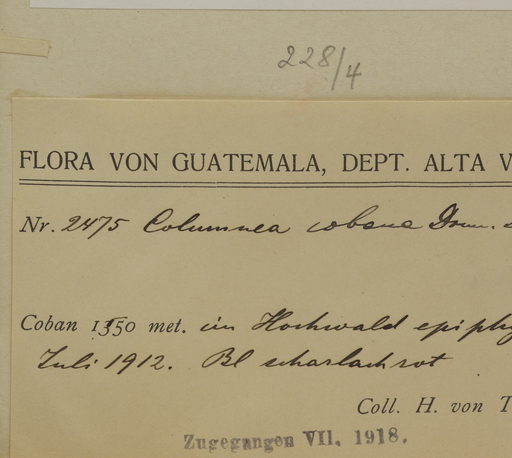 228/4
FLORA VON GUATEMALA, DEPT. ALTA V
Nr. 2475 Columnea cobana Donn.
Coban 1350 met. im Hochwald epiphy
Juli 1912. Bl scharlachrot
Coll. H. von T
Zugegangen VII. 1918.